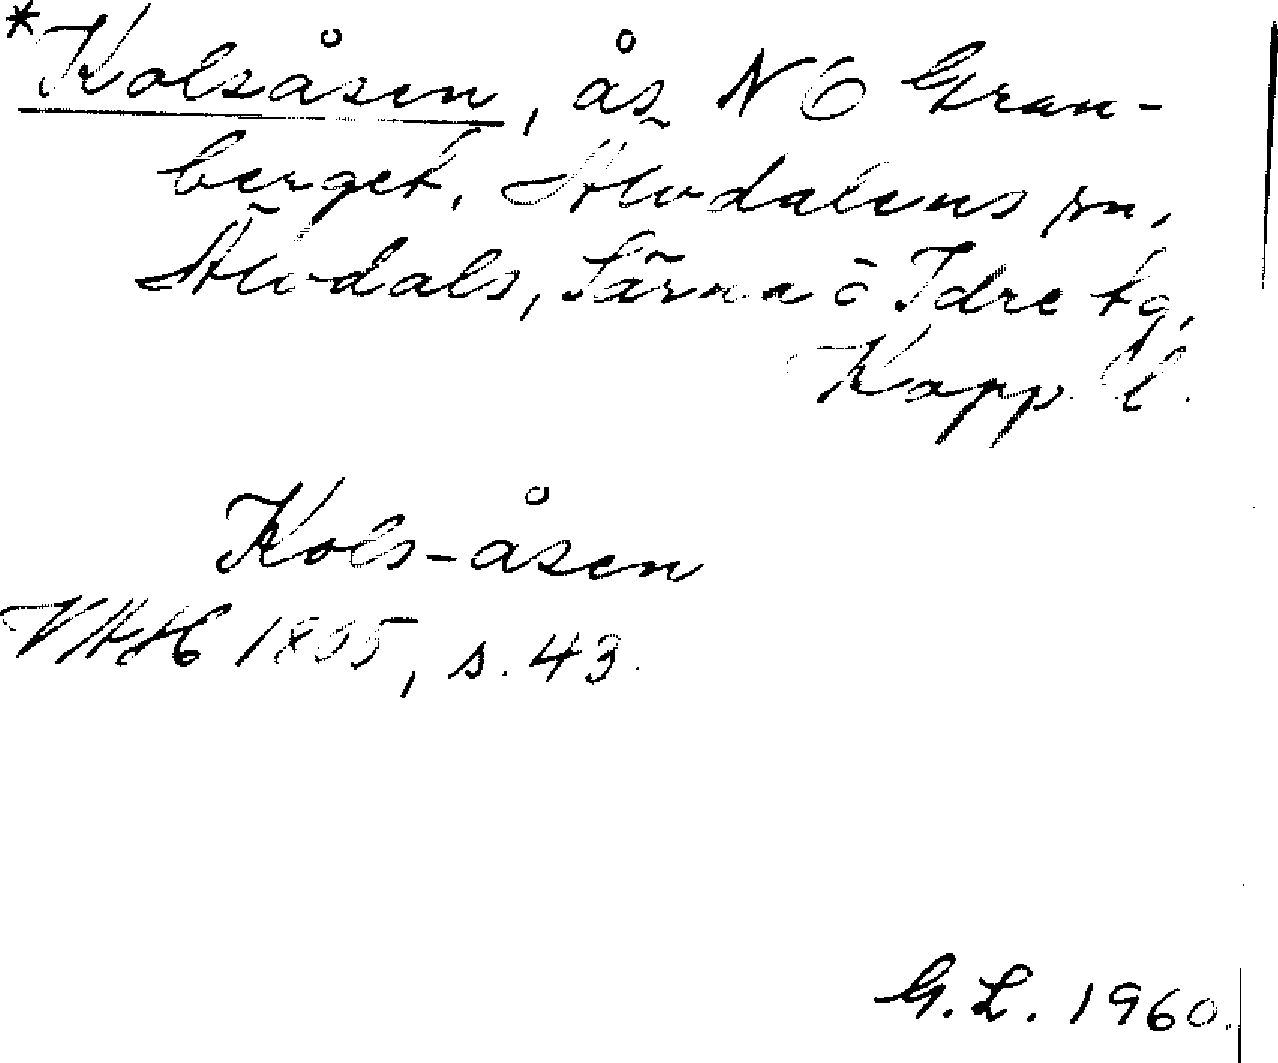 *Kolsåsen, ås NÖ Gran-
berget, Älvdalens sn,
Älvdals, Särna o Idre tg,
Kopp. l.
Kols-åsen
VHAH 1855, s. 43.
G. L. 1960.